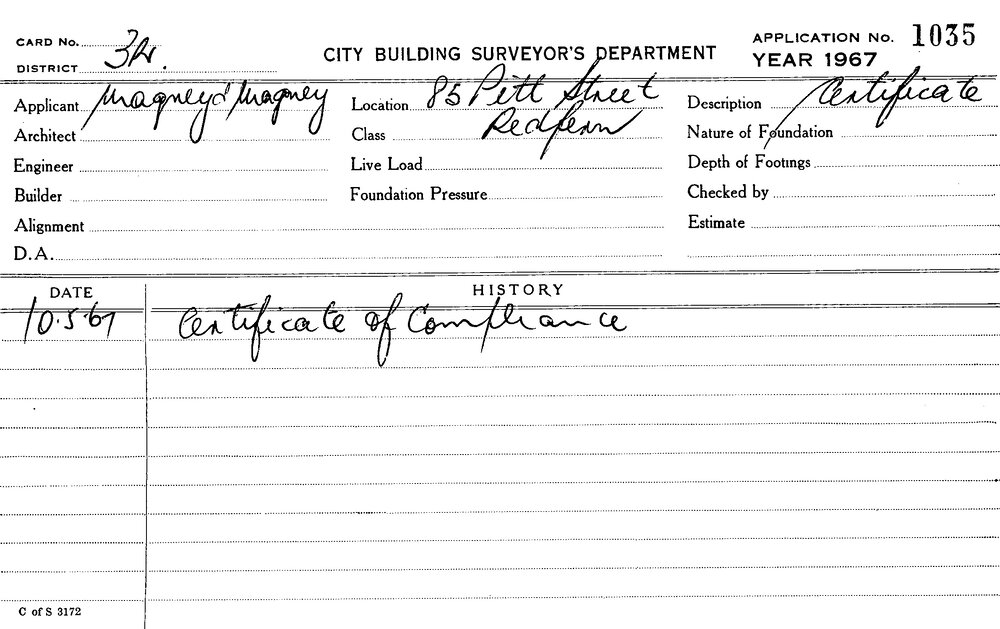 CARD No. 3R.
DISTRICT
CITY BUILDING SURVEYOR'S DEPARTMENT
APPLICATION No. 1035
YEAR 1967
Applicant Magney & Magney
Location 85 Pitt Street
Redfern
Description Certificate
Architect
Class
Nature of Foundation
Engineer
Live Load
Depth of Footings
Builder
Foundation Pressure
Checked by
Alignment
Estimate
D.A.
DATE
HISTORY
10.5.67 Certificate of Compliance
C of S 3172